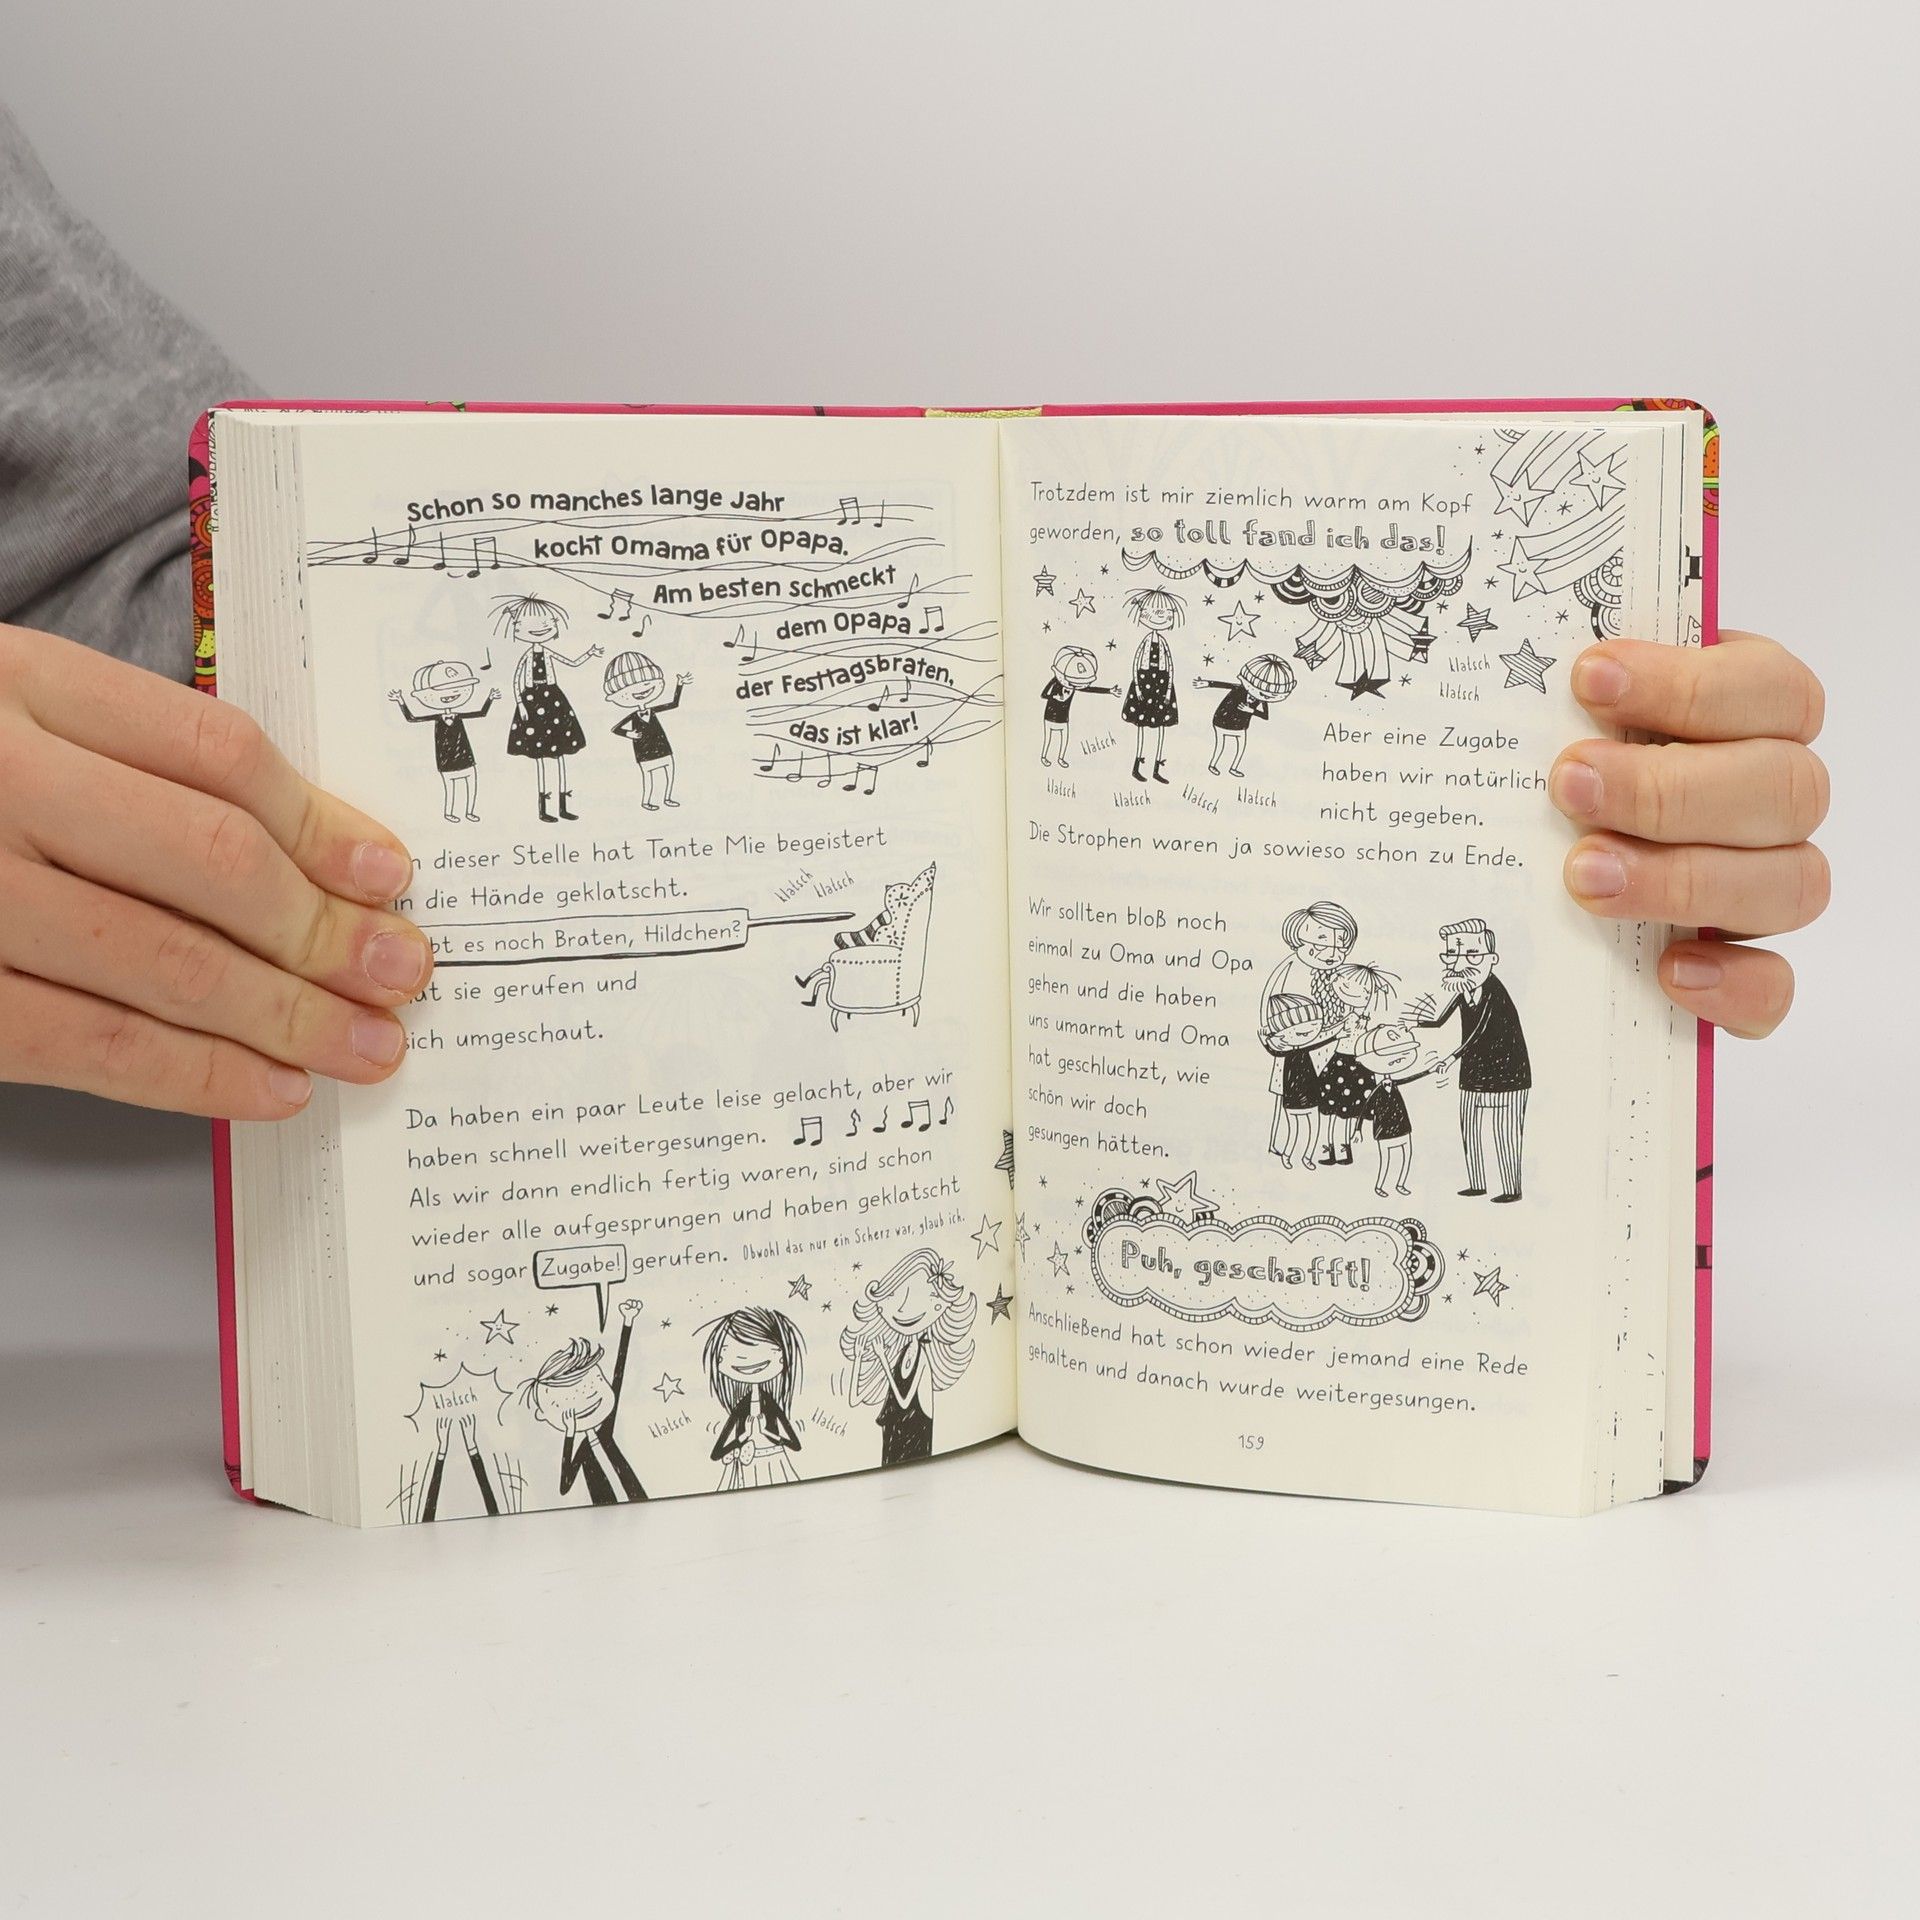 Schon so manches lange Jahr
kocht Omama für Opapa.
Am besten schmeckt
dem Opapa
der Festtagsbraten,
das ist klar!
dieser Stelle hat Tante Mie begeistert
in die Hände geklatscht.
klatsch
klatsch
es noch Braten, Hildchen?
sie gerufen und
sich umgeschaut.
Da haben ein paar Leute leise gelacht, aber wir
haben schnell weitergesungen.
Als wir dann endlich fertig waren, sind schon
wieder alle aufgesprungen und haben geklatscht
und sogar Zugabe! gerufen. Obwohl das nur ein Scherz war, glaub ich.
klatsch
klatsch
klatsch
Trotzdem ist mir ziemlich warm am Kopf
geworden, so toll fand ich das!
klatsch
klatsch
klatsch
klatsch
klatsch
klatsch
klatsch
Aber eine Zugabe
haben wir natürlich
nicht gegeben.
Die Strophen waren ja sowieso schon zu Ende.
Wir sollten bloß noch
einmal zu Oma und Opa
gehen und die haben
uns umarmt und Oma
hat geschluchzt, wie
schön wir doch
gesungen hätten.
Puh, geschafft!
Anschließend hat schon wieder jemand eine Rede
gehalten und danach wurde weitergesungen.
159